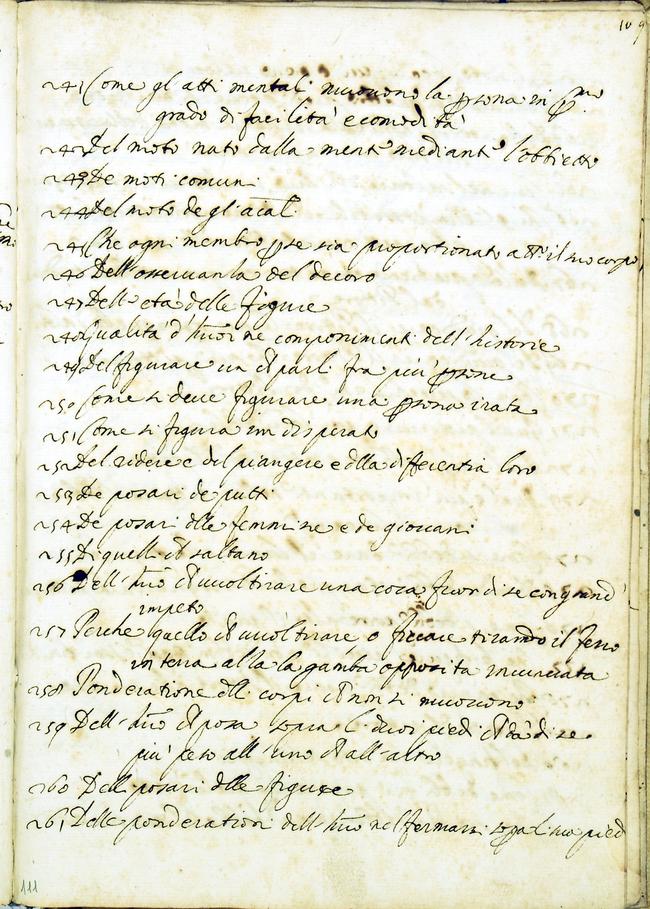 109
241 Come gl'atti mentali muovono la psona in pmo
grado di facilità e comodità
242 Del moto nato dalla mente mediante l'obbietto
243 De moti comuni
244 Del moto degl'aiali
245 Che ogni membro p se sia proportionato a tto il suo corpo
246 Dell'osservanza del decoro
247 Dell'età delle figure
248 Qualità d'huoi ne componimenti dell'historie
249 Del figurare un ch parli fra più psone
250 Come si deve figurare una psona irata
251 Come si figura un disperato
252 Del ridere e del piangere e dlla differentia loro
253 De posari de putti
254 De posari dlle femmine e de giovani
255 Di quelli ch saltano
256 Dell'huo ch vuol tirare una cosa fuor di se con grand'
impeto
257 Perche quello ch vuol tirare o ficcare tirando il ferro
in terra alza la gamba opposita incurvata
258 Ponderatione dlli corpi ch non si muovono
259 Dell'huo ch posa sopra li duoi piedi ch dà di se
più peso all'uno ch all'altro
260 Delli posari dlle figure
261 Delle ponderationi dell'huo nel fermarsi sopa li suo piedi
111